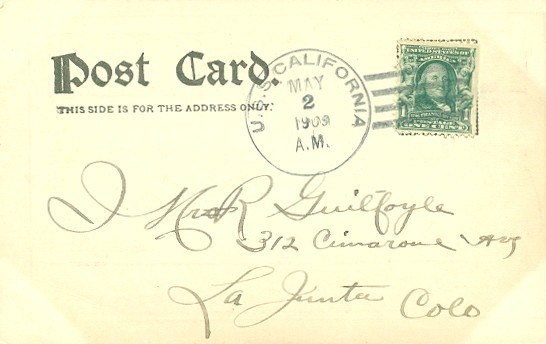 Post Card.
THIS SIDE IS FOR THE ADDRESS ONLY.
U.S.S. CALIFORNIA
MAY
2
1909
A.M.
UNITED STATES OF AMERICA
1 1
POSTAGE
ONE CENT
R Guilfoyle
312 Cimarone Ave
La Junta Colo